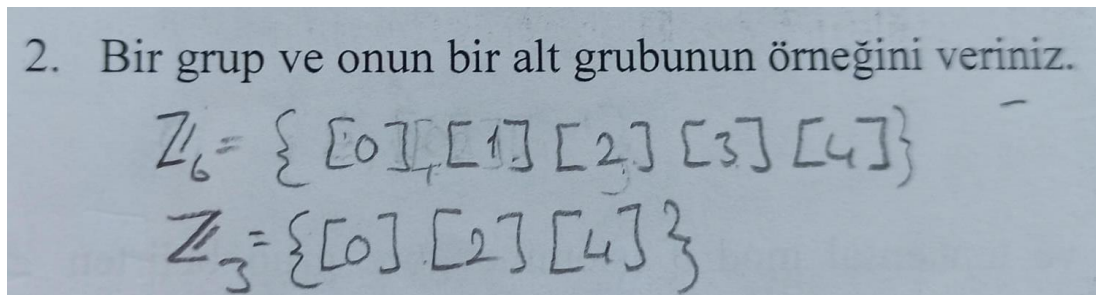 2. Bir grup ve onun bir alt grubunun örneğini veriniz.
ℤ₆ = { [0], [1] [2] [3] [4] }
ℤ₃ = { [0] [2] [4] }